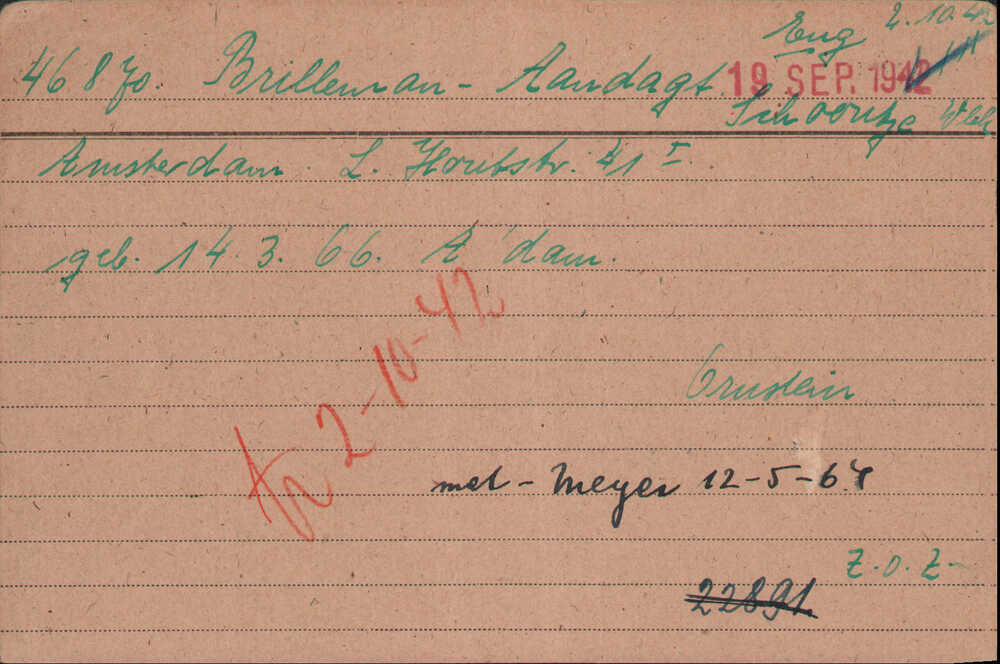 Eng 2.10.42
46870. Brilleman - Aandagt 19 SEP. 1942
Schoontje
Amsterdam. L. Houtstr. 41 I
geb. 14.3.66. A'dam.
2-10-42
Ornstein
met - Meyer 12-5-64
Z.O.Z-
22891